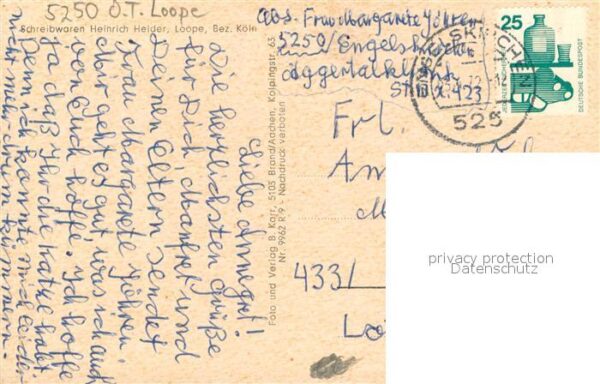 5250 O.T. Loope
Schreibwaren Heinrich Heider, Loope, Bez. Köln
Liebe Annegret!
Die herzlichsten Grüße
für Dich, Manfred und
Deinen Eltern sendet
Frau Margarete Jöhren.
Mir geht es gut was ich auch
von Euch hoffe. Ich hoffe
ja daß Ihr die Katze habt
Denn ich konnte mich leider
nicht mehr drum kümmern.
Foto und Verlag B. Karr, 5103 Brand/Aachen, Kolpingstr. 63
Nr. 9962 R 9 - Nachdruck verboten
Abs. Frau Margarete Jöhren
5250/Engelskirchen
Aggertalklinik
525
25
DEUTSCHE BUNDESPOST
Frl.
An
M
433/
privacy protection
Datenschutz